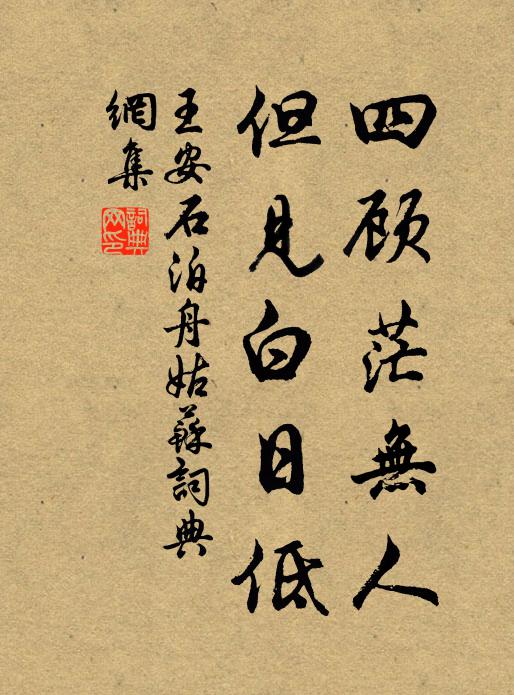 四顾茫無人
但見白日低
王安石泊舟姑蘇詞典
網集
詞典
网印